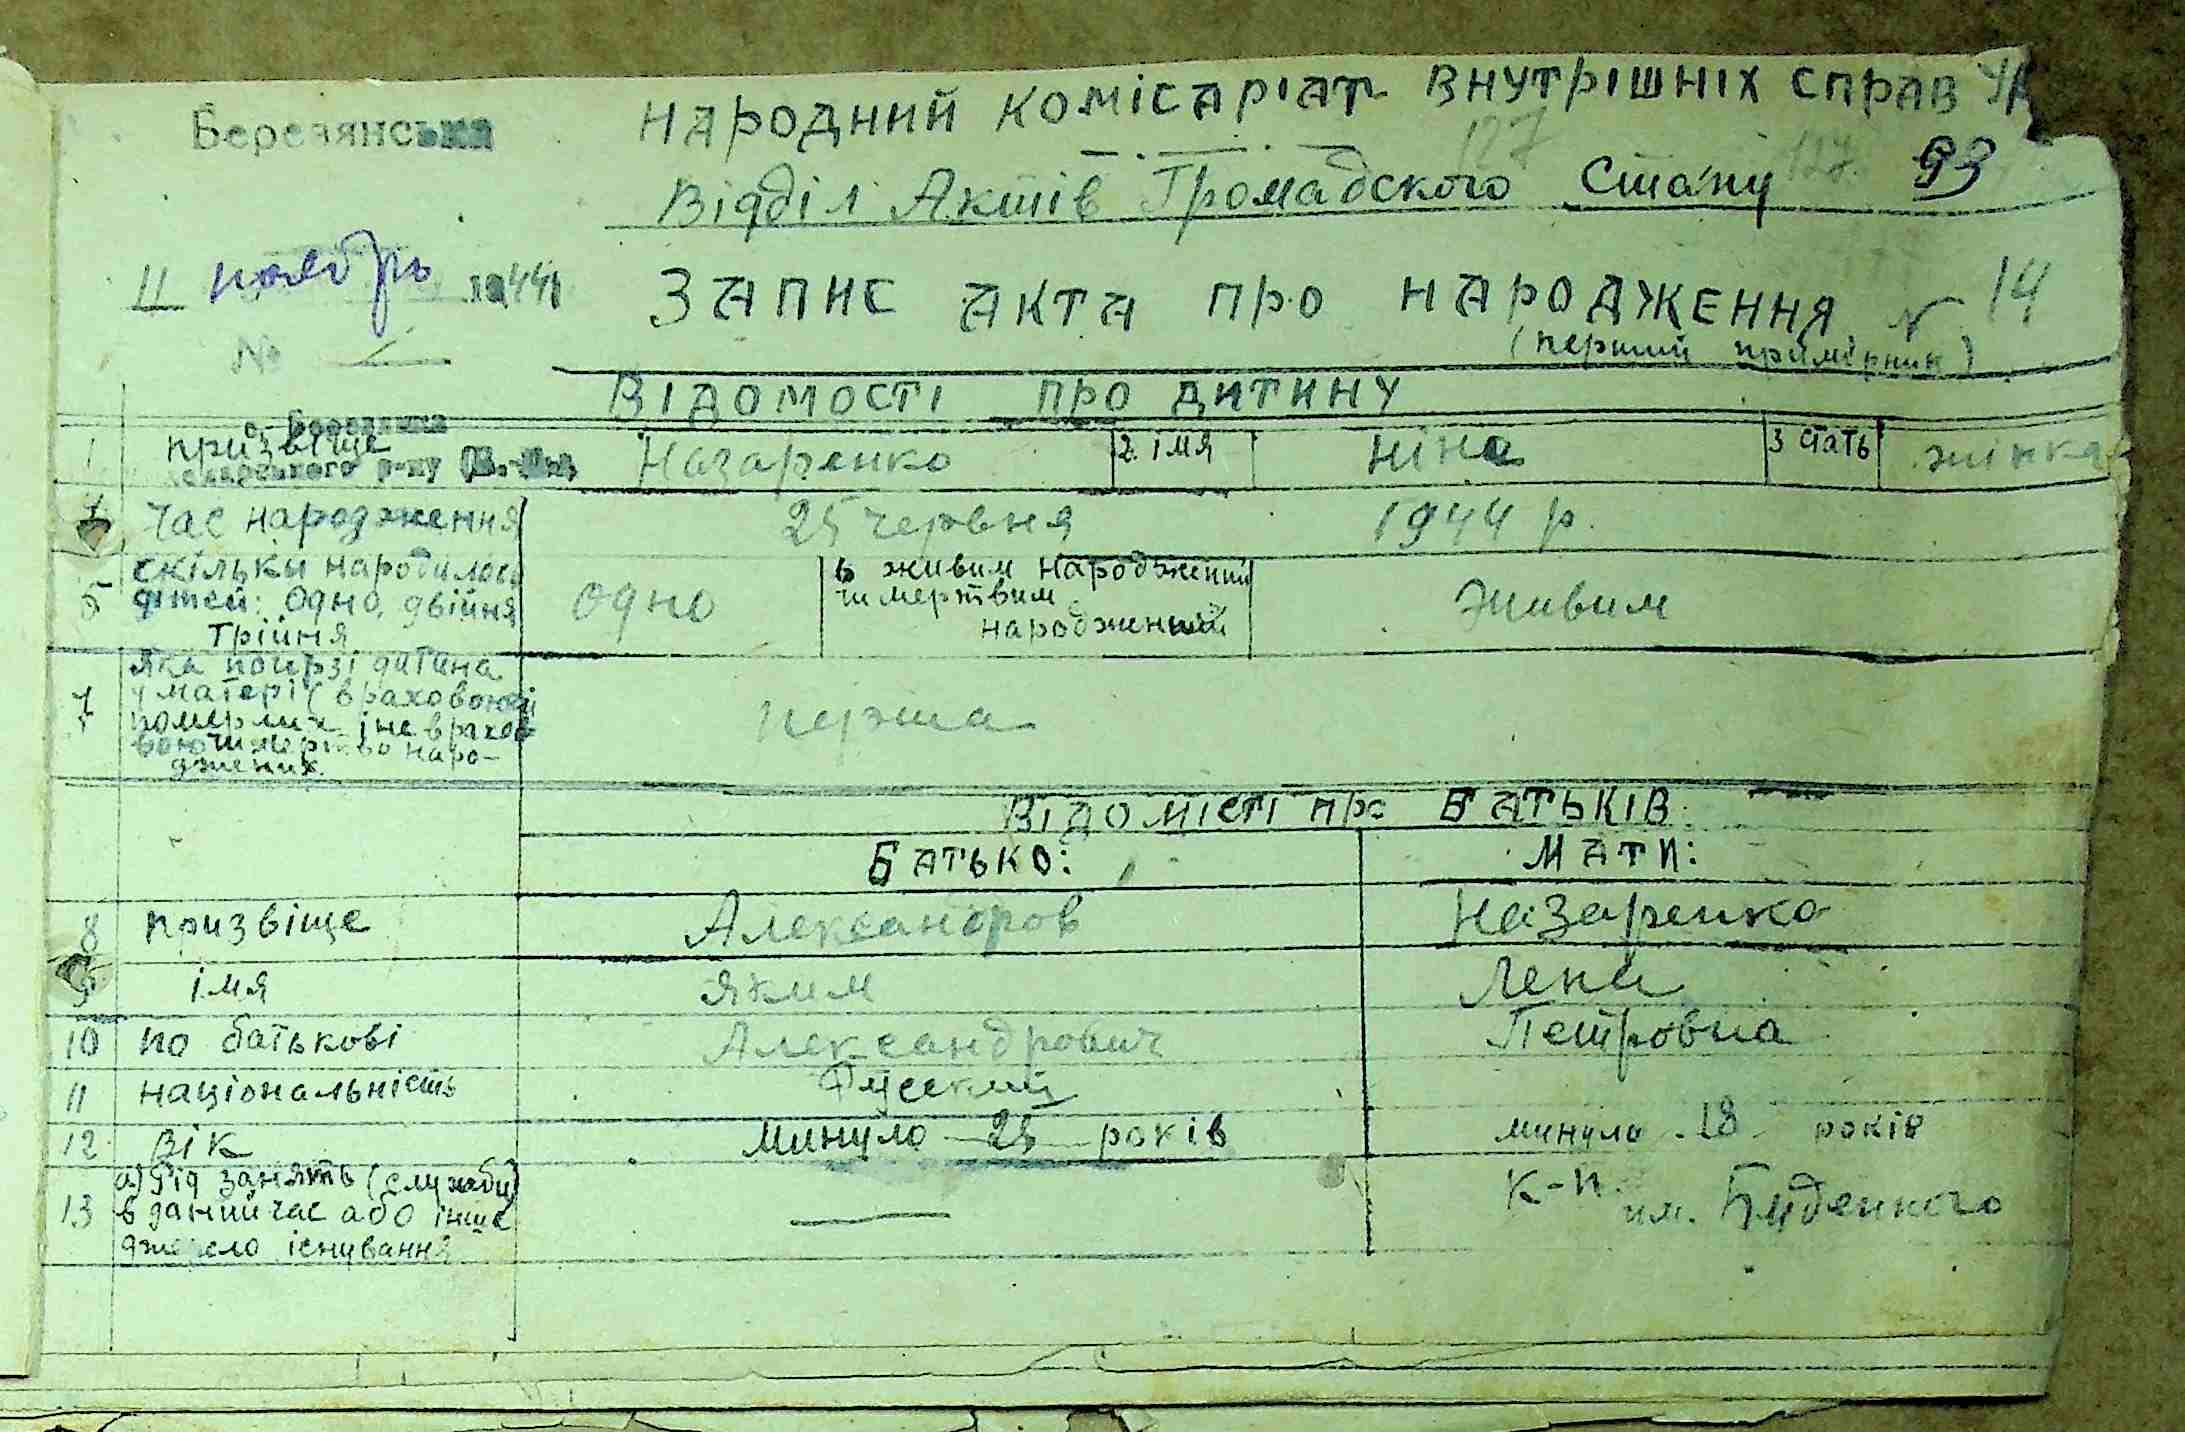 Березянська
Народний комісаріат внутрішніх справ
127 127 93
Відділ Актів Громадского Стану
11 ноябрь 1944
Запис акта про народження N 14
(перший примірник)
№
Відомості про дитину
1 призвіще Назаренко 2. імя Ніна 3 стать жінка
Час народження 25 червня 1944 р.
5 скільки народилось дітей: одно, двійня трійня одно
6 живим народжений чи мертвим народженний живим
7 яка по чирзі дитина у матері (враховоючі померлих і не врахововоючи мертво народжених перша
Відомісті про батьків
Батько: Мати:
8 призвіще Александров Назаренко
9 імя Яким Лена
10 по батькові Александрович Петровна
11 національність Русский
12 вік минуло 25 років минуло 18 років
13 а) Рід занять (служби) в даний час або інше джерело існування — к-п. им. Буденного